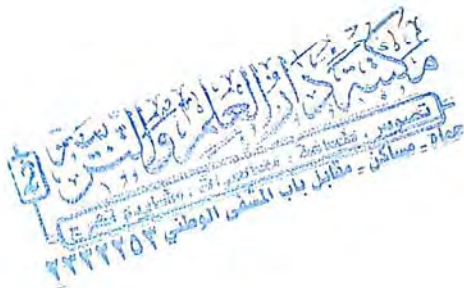 مكتبة دار العلم والتربية
2
تصوير
حماة - مساكن - مقابل باب المشفى الوطني ٢٢٢٢٢٥٢